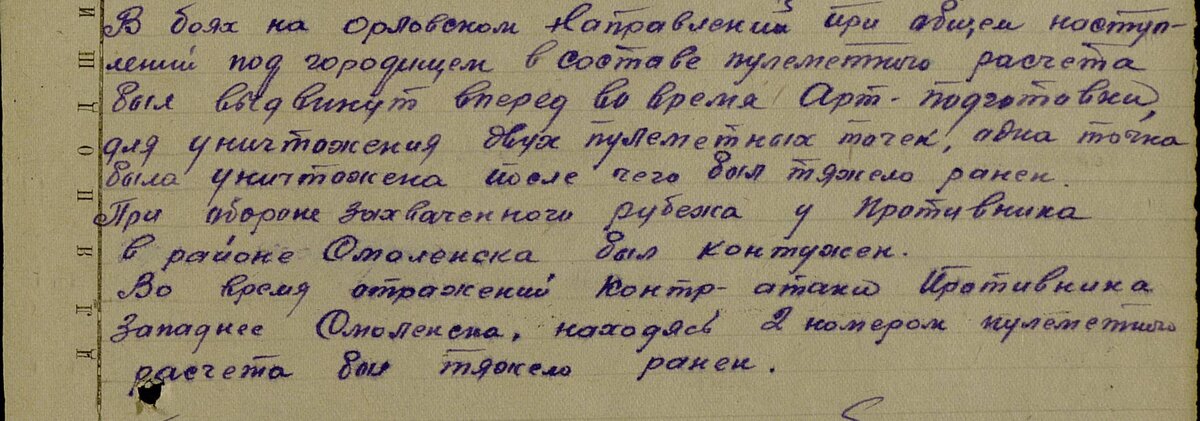 В боях на орловском направлений при общем наступ-
лений под городищем в составе пулеметного расчета
был выдвинут вперед во время Арт-подготовки,
для уничтожения двух пулеметных точек, одна точка
была уничтожена после чего был тяжело ранен.
При обороне захваченного рубежа у Противника
в районе Смоленска был контужен.
Во время отражений контр-атаки Противника
Западнее Смоленска, находясь 2 номером пулеметного
расчета был тяжело ранен.
ДЛЯ ПОДШИ